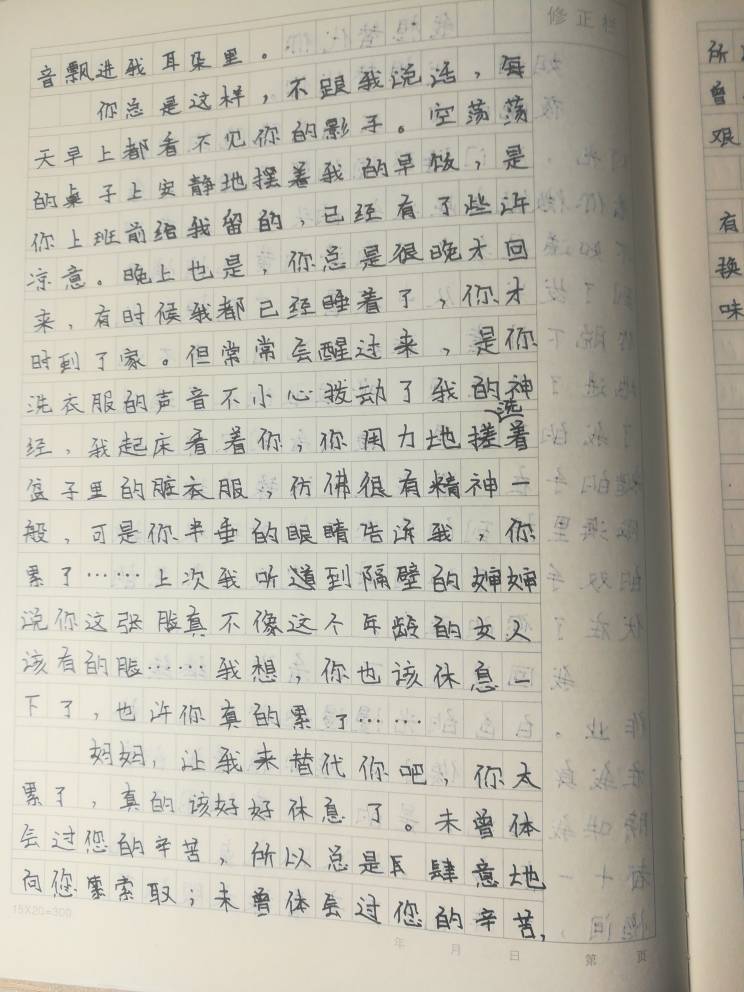 修正栏
音飘进我耳朵里。
你总是这样，不跟我说话，每
天早上都看不见你的影子。空荡荡
的桌子上安静地摆着我的早饭，是
你上班前给我留的，已经有了些许
凉意。晚上也是，你总是很晚才回
来，有时候我都已经睡着了，你才
时到了家。但常常会醒过来，是你
洗衣服的声音不小心拨动了我的神
经，我起床看着你，你用力地搓洗着
盆子里的脏衣服，仿佛很有精神一
般，可是你半垂的眼睛告诉我，你
累了……上次我听道到隔壁的婶婶
说你这张脸真不像这个年龄的女人
该有的脸……我想，你也该休息一
下了，也许你真的累了……
妈妈，让我来替代你吧，你太
累了，真的该好好休息了。未曾体
会过您的辛苦，所以总是肆意地
向您索取；未曾体会过您的辛苦，
15×20=300
年 月 日 第 页
所
曾
艰
有
换
味